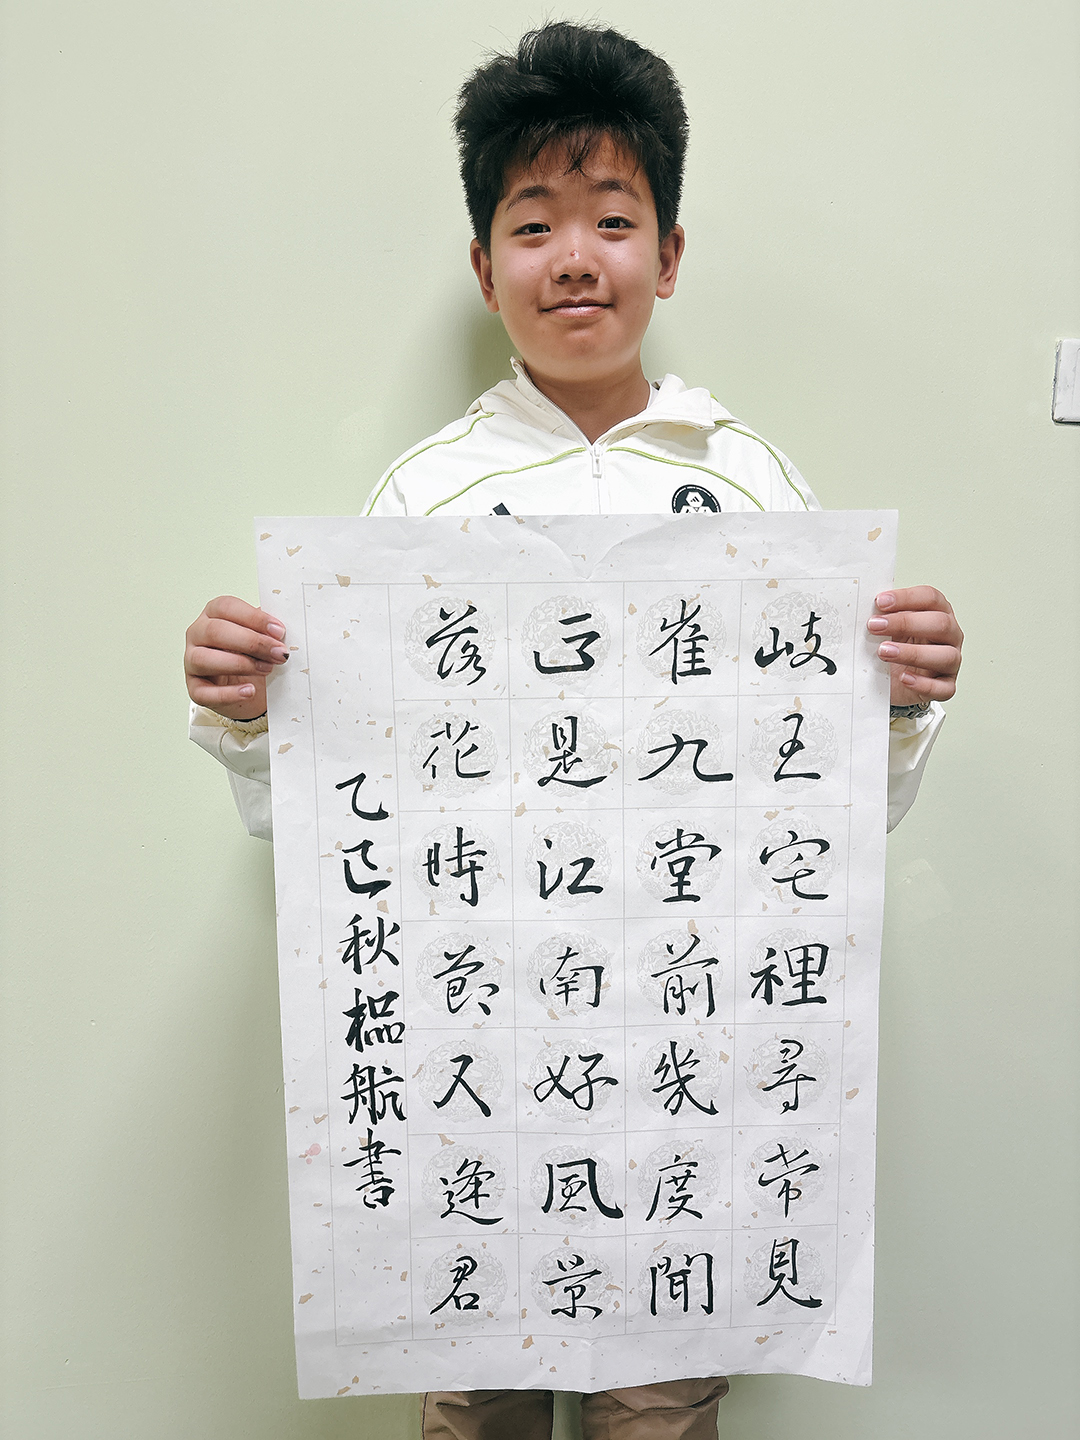 岐王宅裡尋常見
崔九堂前幾度聞
正是江南好風景
落花時節又逢君
乙巳秋樞航書